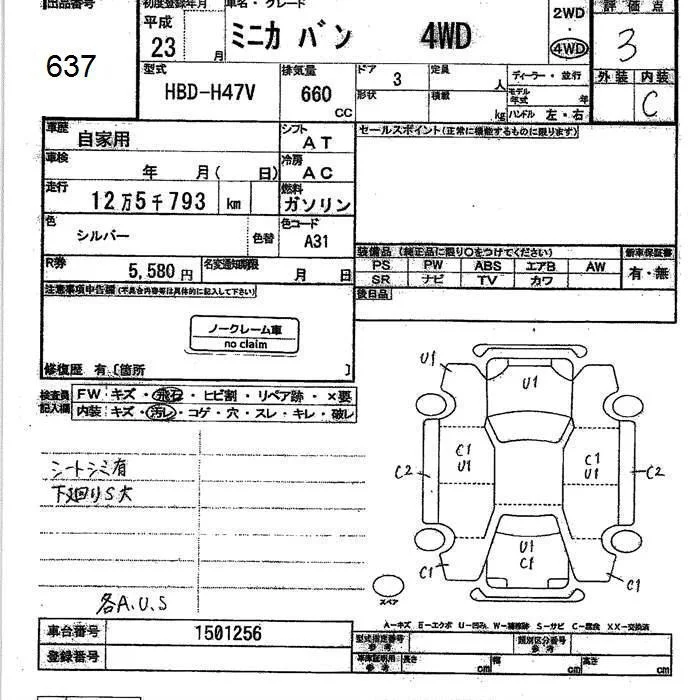 出品番号
637
初度登録年月
平成
23 月
車名・グレード
ミニカ バン 4WD
2WD
・
4WD
評価点
3
外装 内装
C
型式
HBD-H47V
排気量
660
CC
ドア 3
形状
定員 人
積載 kg
ディーラー・並行
モデル年式 年
ハンドル 左・右
車歴 自家用
シフト AT
車検 年 月( 日)
冷房 AC
走行 12万5千793 km
燃料 ガソリン
色 シルバー 色替
色コード A31
R券 5,580円
名変通知期限 月 日
セールスポイント(正常に機能するものに限ります)
装備品(純正品に限り○をつけてください)
PS PW ABS エアB AW
SR ナビ TV カワ
新車保証書
有・無
後日品
注意事項申告欄(不具合内容等は具体的に記入して下さい)
ノークレーム車
no claim
修復歴 有〔箇所 〕
検査員記入欄
FW キズ・飛石・ヒビ割・リペア跡・×要
内装 キズ・汚レ・コゲ・穴・スレ・キレ・破レ
シートシミ有
下廻りS大
各A.U.S
U1
U1
C1
U1
C1
U1
C2
C2
U1
C1
C1
C1
スペア
A−キズ E−エクボ U−凹み W−補修跡 S−サビ C−腐食 XX−交換済
車台番号 1501256
登録番号
型式指定番号
参考
類別区分番号
参考
車庫証明用
参考
長さ cm 幅 cm 高さ cm